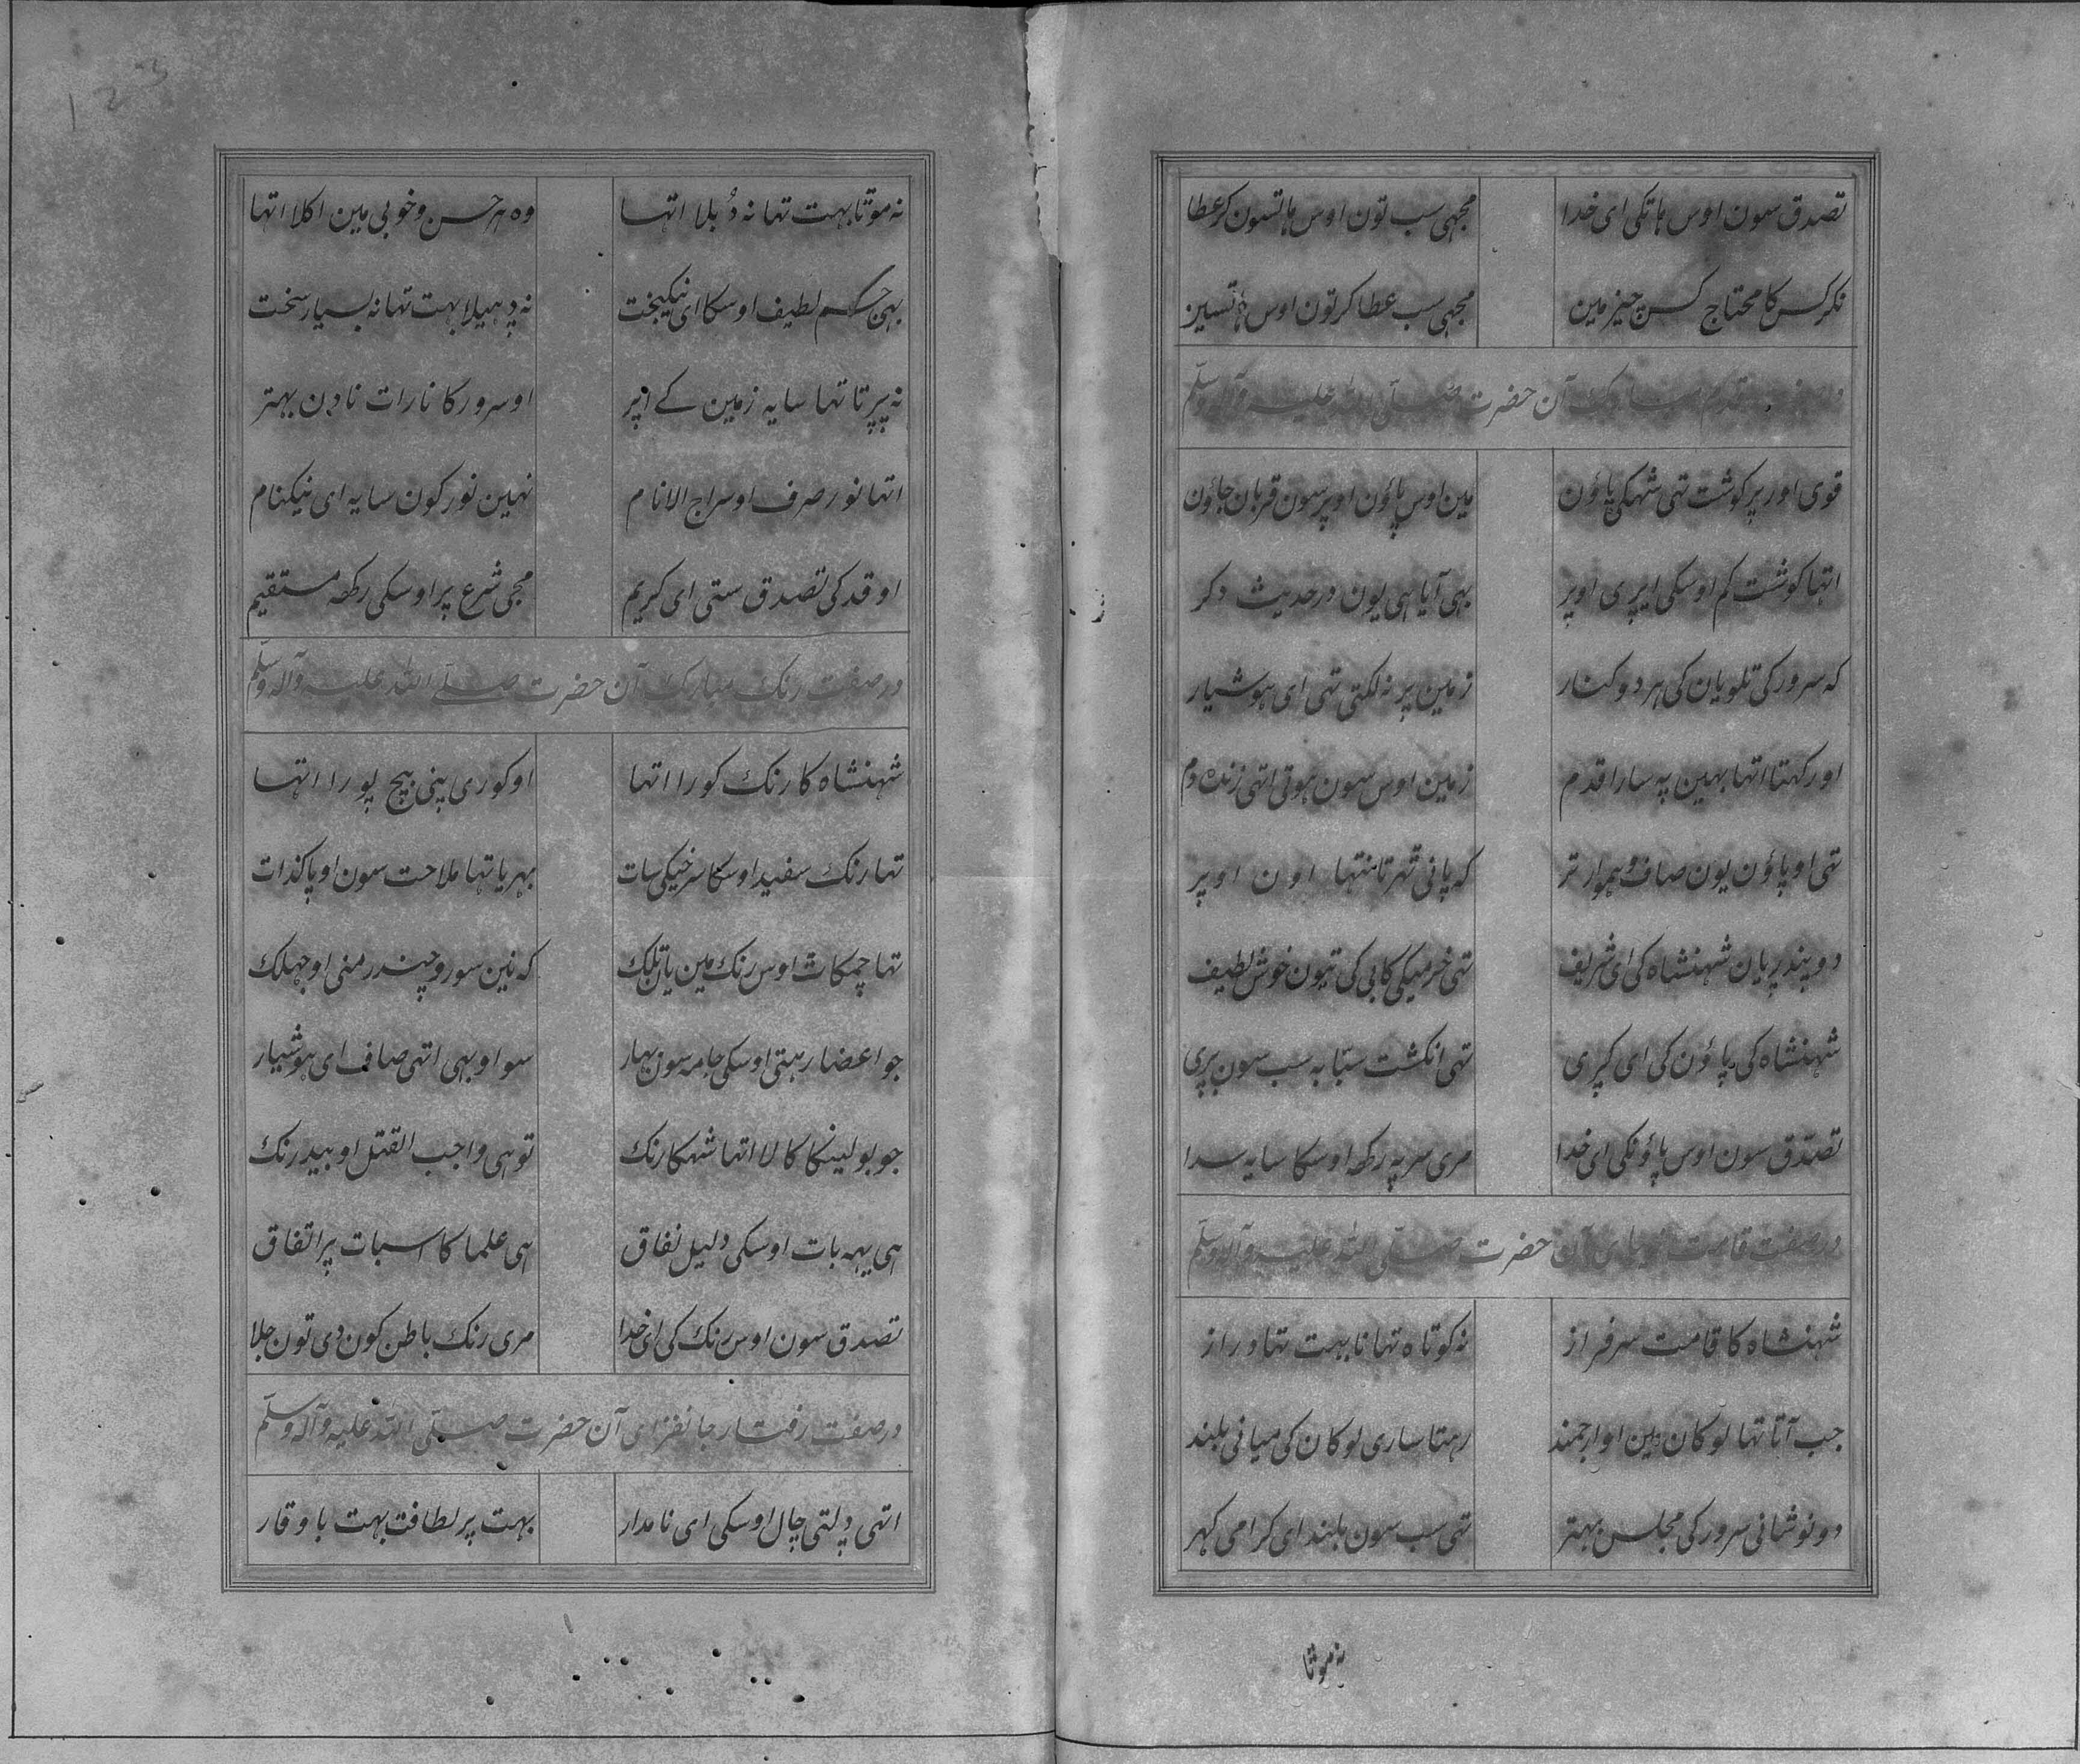 تصدق سون اوس ہاتکی ای خدا مجہی سب تون اوس ہاتسون کر عطا
نکر کس کا محتاج کس چیز مین مجہی سب عطا کر تون اوس ہاتسین
قدم مبارک آن حضرت صلّی اللہ علیہ وآلہ وسلّم
قوی اور پر کوشت تہی شہکی پاؤن مین اوس پاؤن اوپر سون قربان جاؤن
اتہا کوشت کم اوسکی ایڑی اوپر بہی آیا ہی یون در حدیث دکر
کہ سرور کی تلویان کی ہر دو کنار زمین پر نہ لکتی تہی ای ہوشیار
اور کہتا اتہا بہین پہ سارا قدم زمین اوس سون ہوتی اتہی زندہ دم
تہی او پاؤن یون صاف و ہموار تر کہ پانی تہرتا نتہا اون اوپر
دو پنڈریان شہنشاہ کی ای شریف تہی خرمیکی کابی کی نیون خوش لطیف
شہنشاہ کی پاؤن کی ای کپری تہی انکشت سبّابہ سب سون بری
تصدّق سون اوس پاؤنکی ای خدا مری سر پہ رکہہ اوسکا سایہ سدا
درصفت قامت آن حضرت صلّی اللہ علیہ وآلہ وسلّم
شہنشاہ کا قامت سرفراز نہ کوتاہ تہا نا بہت تہا دراز
جب آتا تہا لوکان مین او ارجمند رہتا ساری لوکان کی میانی بلند
دونو شانی سرور کی مجلس بہتر تہی سب سون بلند ای کرامی کہر
نہ موتا
نہ موتا بہت تہا نہ دُبلا اتہا وہ ہر حسن و خوبی مین اکلا اتہا
بہی جسم لطیف اوسکا ای نیکبخت نہ ڈہیلا بہت تہا نہ بسیار سخت
نہ پڑتا تہا سایہ زمین کے اپر او سرور کا نا رات نا دن بہتر
اتہا نور صرف او سراج الانام نہین نور کون سایہ ای نیکنام
او قد کی تصدق ستی ای کریم مجی شرع پر اوسکی رکہہ مستقیم
درصفت رنک مبارک آن حضرت صلّے اللہ علیہ وآلہ وسلّم
شہنشاہ کا رنک کورا اتہا او کوری پنی بیچ پورا اتہا
تہا رنک سفید اوسکا سرخیکی سات بہریا تہا ملاحت سون او پاکذات
تہا چمکاٹ اوس رنک مین یا تلک کہ نین سور و چندر منی او جہلک
جو اعضا رہتی اوسکی جامہ سون بہار سو او بہی اتہی صاف ای ہوشیار
جو بولینکا کالا اتہا شہکا رنک تو ہی واجب القتل او بیدرنک
ہی یہہ بات اوسکی دلیل نفاق ہی علما کا اسبات پر اتفاق
تصدق سون اوس رنک کی ای خدا مری رنک باطن کون دی تون جلا
درصفت رفتار جانفزای آن حضرت صلّی اللہ علیہ وآلہ وسلّم
اتہی ڈلتی چال اوسکی ای نامدار بہت پر لطافت بہت باوقار